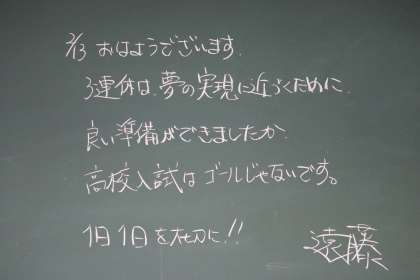 2/13 おはようございます.
3連休は、夢の実現に近づくために、
良い準備ができましたか、
高校入試はゴールじゃないです。
1日1日を大切に!!
遠藤